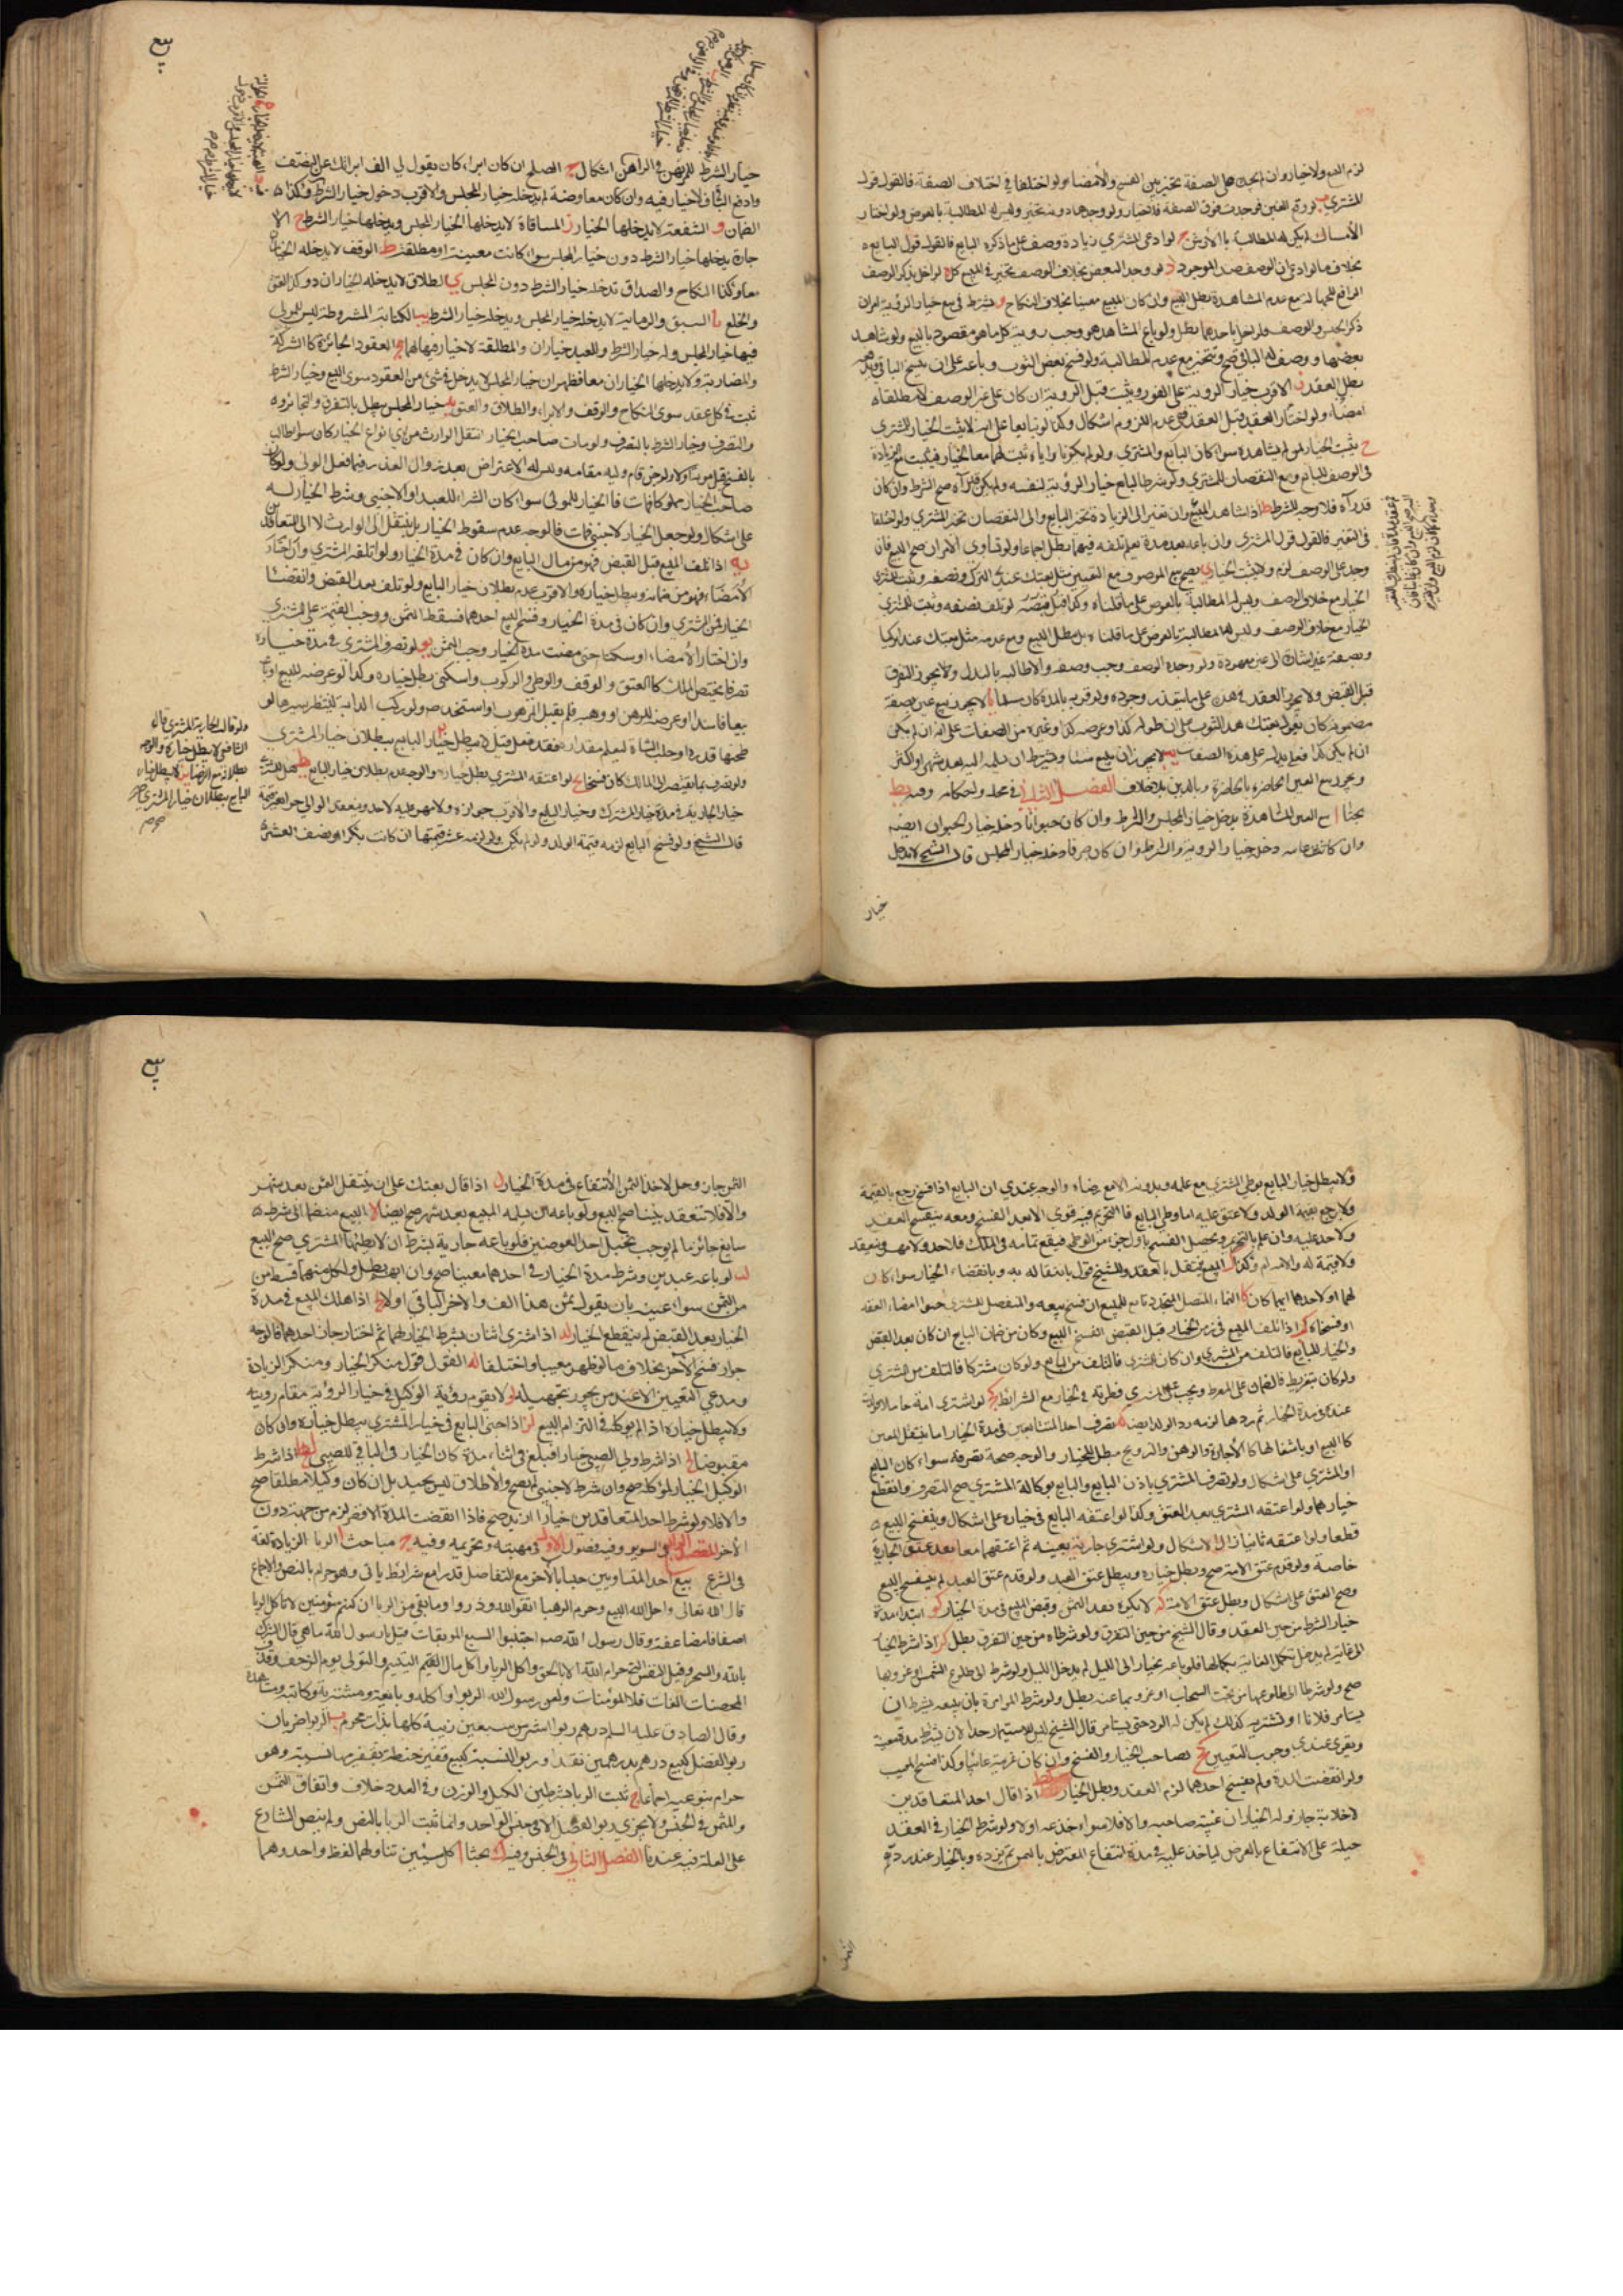 لزم البيع ولا خيار وان لم يجده على الصفة تخير بين الفسخ والامضاء ولو اختلفا في اختلاف الصفة فالقول قول
المشتري
الامساك لم يكن له المطالبة بالارش ج لو ادعى المشتري زيادة وصف على ما ذكره البايع فالقول قول البايع
بخلاف ما لو ادعى ان الوصف ضد الموجود د لو وجد البعض بخلاف الوصف تخير في المبيع كله ه لو اخل بذكر الوصف
الرافع للجهالة مع عدم المشاهدة بطل البيع وان كان المبيع معينا بخلاف النكاح و يشترط في بيع خيار الرؤية امران
ذكر الجنس والوصف فلو اخل باحدهما بطل ولو باع المشاهد وجب رؤية كل ما هو مقصود بالبيع ولو شاهد
بعضها ووصف له الباقي صح وتخير مع عدم المطابقة ولو نسج بعض الثوب وباعه على ان ينسج الباقي
بطل العقد ز الاقرب خيار الرؤية على الفور ويثبت قبل الرؤية ان كان على غير الوصف لا مطلقا
امضاء ولو اختار العقد قبل العقد ففي عدم اللزوم اشكال وكذا لو تبايعا على انه لا يثبت الخيار للمشتري
ح يثبت الخيار لمن لم يشاهده سواء كان البايع والمشتري ولو لم يكونا رأياه ثبت لهما معا الخيار فيثبت مع الزيادة
في الوصف للبايع ومع النقصان للمشتري ولو شرط البايع خيار الرؤية لنفسه ولم يكن قد رآه صح الشرط وان كان
قد رآه فلا وجه للشرط ط اذا شاهد المبيع وان تغير الى الزيادة تخير البايع والى النقصان تخير المشتري ولو اختلفا
في التغير فالقول قول المشتري وان باعه بعد مدة يعلم تلفه فيها بطل اجماعا ولو تساوى الامران صح البيع فان
وجد على الوصف لزم ولا يثبت الخيار ي يصح بيع الموصوف مع التعيين مثل بعتك عبدي التركي ويصفه ويثبت للمشتري
الخيار مع خلاف الوصف وليس له المطالبة بالعوض على ما قلناه وكذا قبل قبضه لو تلف
الخيار مع خلاف الوصف وليس له المطالبة بالعوض على ما قلناه بل يبطل البيع ومع عدمه مثل بعتك عبدا تركيا
ويصفه غير مشار الى عين معهودة ولو وجده الوصف وجب وصفه والا طالبه بالبدل ولا يجوز التفرق
قبل القبض ولا يجوز العقد في هذه على ما يتعذر وجوده ولو قرنه بالمدة كان سلما يا لا يجوز بيع عين بصفة
مضمونة كان يقول بعتك هذا الثوب على ان طوله كذا وعرضه كذا وغيره من الصفات على انه ان لم يكن
ان لم يكن كذا فعلي بدله على هذه الصفات يب لا يجوز ان يبيع شيئا ويشترط ان يسلمه اليه بعد شهر او اكثر
ويجوز بيع العين الحاضرة بالحاضرة وبالدين بلا خلاف الفصل الثاني في محله واحكامه وفيه يط
بحثا ا بيع العين المشاهدة يدخله خيار المجلس والشرط وان كان حيوانا دخله خيار الحيوان ايضا
وان كانت غائبة دخله خيار الرؤية والشرط وان كان صرفا دخله خيار المجلس قال الشيخ لا يدخل
خيار
بيع
خيار الشرط للمرتهن وفي الراهن اشكال ج الصلح ان كان ابراء كان يقول لي الف ابراتك عن النصف
وادفع الباقي فلا خيار فيه وان كان معاوضة لم يدخله خيار المجلس والاقرب دخول خيار الشرط وكذا
الضمان و الشفعة لا يدخلها الخيار ز المساقاة لا يدخلها الخيار المجلس ويدخلها خيار الشرط ح الا
جارة يدخلها خيار الشرط دون خيار المجلس سواء كانت معينة او مطلقة ط الوقف لا يدخله الخيار
معا وكذا النكاح والصداق تدخله خيار الشرط دون المجلس ي الطلاق لا يدخله الخياران وكذا العتق
والخلع يا السبق والرماية لا يدخله خيار المجلس ويدخله خيار الشرط يب الكتابة المشروطة ليس للمولى
فيها خيار المجلس وله خيار الشرط وللعبد خياران والمطلقة لا خيار فيها لهما يج العقود الجائزة كالشركة
والمضاربة ولا يدخلها الخياران معا فظهر ان خيار المجلس لا يدخل في شيء من العقود سوى البيع وخيار الشرط
ثبت في كل عقد سوى النكاح والوقف والابراء والطلاق والعتق يد خيار المجلس يبطل بالتفرق والتخاير
والتصرف وخيار الشرط بالتصرف ولو مات صاحب الخيار انتقل الى الوارث من اي انواع الخيار كان سواء طالب
بالفسخ قبل موته اولا ولو جن قام وليه مقامه وليس له الاعتراض بعد زوال العذر فيما فعله الولي ولو كان
صاحب الخيار مملوكا فمات فالخيار للمولى سواء كان الشراء للعبد او الاجنبي وشرط الخيار له
على اشكال ولو جعل الخيار لاجنبي فمات فالوجه عدم سقوط الخيار بل ينتقل الى الوارث لا الى المتعاقدين
يه اذا تلف المبيع قبل القبض فهو من مال البايع وان كان في مدة الخيار ولو اتلفه المشتري وان اختار
الامضاء فهو من ضمانه ويبطل خياره والاقرب عدم بطلان خيار البايع ولو تلف بعد القبض وانقضاء
الخيار فمن المشتري وان كان في مدة الخيار وفسخ البيع احدهما سقط الثمن ووجب القيمة على المشتري
وان اختار الامضاء او سكتا حتى مضت مدة الخيار وجب الثمن يو لو تصرف المشتري في مدة خياره
تصرفا يختص الملك كالعتق والوقف والوطي والركوب والسكنى بطل خياره وكذا لو عرضه للبيع او باع
بيعا فاسدا او عرضه للرهن او وهبه فلم يقبل المرهوب او استخدمه ولو ركب الدابة لينظر سيرها او
طحنها قدرا او حلب الشاة ليعلم مقداره فقد قيل لا يبطل خيار البايع ببطلان خيار المشتري
ولو تصرف بما يفتقر الى الملك كان فسخا يح لو اعتقه المشتري بطل خياره والوجه عدم بطلان خيار البايع يط
خيار الجارية في مدة خيار المشترك وخيار البايع والاقرب جوازه ولا مهر عليه لا حد وينعقد الولد حرا
قال الشيخ ولو فسخ البايع لزمه قيمة الولد ولو لم يكن ولد لزمه عشر قيمتها ان كانت بكرا او نصف العشر
ولو قال الجارية للمشتري قال
الشافعي لا يبطل خياره والوجه
البايع ببطلان خيار المشتري
ولا يبطل خيار البايع بوطي المشتري مع علمه وبدونه الا مع رضاه والوجه عندي ان البايع اذا فسخ رجع بالقيمة
ولا يرجع بقيمة الولد ولا عتق عليه اما وطي البايع فالتحريم فيه قوي الا بعد الفسخ ومعه ينفسخ العقد
ولا حد عليه وان علم بالتحريم ويحصل الفسخ باول جزء من الوطي فيقع تمامه في الملك فلا حد ولا مهر وينعقد
ولا قيمة له والامة ام ولد ك المبيع ينتقل بالعقد وللشيخ قول بانتقاله به وبانقضاء الخيار سواء كان
لهما او لاحدهما ايهما كان كا النماء المتصل المتجدد تابع للمبيع ان فسخ بيعه والمنفصل للمشتري سواء امضاء العقد
او فسخاه كب اذا تلف المبيع في زمن الخيار قبل القبض انفسخ البيع وكان من ضمان البايع ان كان بعد القبض
والخيار للبايع فالتلف من المشتري وان كان للمشتري فالتلف من البايع ولو كان مشتركا فالتلف من المشتري
ولو كان بتفريط فالضمان على المفرط ويجب على المشتري فطرته في الخيار مع الشرايط كج لو اشترى امة حاملا فولدت
عنده في مدة الخيار ثم ردها لزمه رد الولد ايضا كد تصرف احد المتبايعين في مدة الخيار اما بنقل العين
كالبيع او باشغالها كالاجارة والرهن والتزويج مبطل للخيار والوجه صحة تصرفه سواء كان البايع
او المشتري على اشكال ولو تصرف المشتري باذن البايع والبايع بوكالة المشتري صح التصرف وانقطع
خيارهما ولو اعتقه المشتري نفذ العتق وكذا لو اعتقه البايع في خياره على اشكال وينفسخ البيع
قطعا ولو اعتقه ثانيا زال الاشكال ولو اشترى جارية بعينه ثم اعتقهما معا نفذ عتق الجارية
خاصة ولو قدم عتق الامة صح وبطل خياره ويبطل عتق العبد ولو قدم عتق العبد لم ينفسخ البيع
وصح العتق على اشكال وبطل عتق الامة كه لا يكره نقد الثمن وقبض المبيع في مدة الخيار كو ابتداء مدة
خيار الشرط من حين العقد وقال الشيخ من حين التفرق ولو شرطاه من حين التفرق بطل كز اذا شرط الخيار
الى غاية لم يدخل تكمل الغاية بكمالها فلو باعه بخيار الى الليل لم يدخل الليل ولو شرط الى طلوع الشمس او غروبها
صح ولو شرطا الى طلوعها من تحت السحاب او غروبها عنه بطل ولو شرط المؤامرة بان يبيعه بشرط ان
يستامر فلانا او يشتريه كذلك لم يكن له الرد حتى يستامر قال الشيخ ليس للاستيمار حد الا ان يشترط مدة معينة
ويقوى عندي وجوب التعيين كح لصاحب الخيار والفسخ وان كان غريمه غائبا وكذا فسخ المعيب
ولو انقضت المدة ولم يفسخ احدهما لزم العقد وبطل الخيار كط اذا قال احد المتعاقدين
لا خلابة جاز وله الخيار ان غبنه صاحبه والا فلا سواء خدعه اولا ولو شرط الخيار في العقد
حيلة على الانتفاع بالقرض لياخذ غلته في مدة انتفاع المقترض بالثمن ثم يرده وبالخيار عند رد
الثمن
بيع
الثمن جاز وحل لاخذ الثمن الانتفاع في مدة الخيار ل اذا قال بعتك على ان ينتقل الثمن بعد شهر
والا فلا تنعقد بيننا صح البيع ولو باعه على ان يسلمه المبيع بعد شهر صح ايضا لا البيع منضما الى شرط
سايغ جائز ما لم يوجب تجهيل احد العوضين فلو باعه جارية بشرط ان لا يطئها المشتري صح البيع
لب لو باعه عبدين وشرط مدة الخيار في احدهما معينا صح وان ابهم بطل ولكل منهما قسط من
من الثمن سواء عينه بان يقول ثمن هذا الف والاخر الباقي اولا لج اذا هلك المبيع في مدة
الخيار بعد القبض لم ينقطع الخيار لد اذا اشترى اثنان بشرط الخيار لهما ثم اختار احدهما فالوجه
جواز فسخ الاخر بخلاف ما لو ظهر معيبا واختلفا له القول قول منكر الخيار ومنكر الزيادة
ومدعي التعيين الا عند من يجوز تجهيله لو لا يقوم رؤية الوكيل في خيار الرؤية مقام رؤيته
ولا يبطل خياره اذا لم يوكله في التزام البيع لز اذا جنى البايع في خيار المشتري يبطل خياره وان كان
مقبوضا لح اذا شرط ولي الصبي خيارا فبلغ في اثناء مدة كان الخيار في الباقي للصبي لط اذا شرط
الوكيل الخيار لموكله صح وان شرط لاجنبي لم يصح والاطلاق ليس بجيد بل ان كان وكيلا مطلقا صح
والا فلا ولو شرط احد المتعاقدين خيارا ازيد صح فاذا انقضت المدة الاقصر لزم من جهته دون
الاخر المقصد الرابع في الربوا وفيه فصول الاول في مهيته وتحريمه وفيه ج مباحث ا الربا الزيادة لغة
في الشرع بيع احد المتساويين جنسا بالاخر مع التفاضل قدرا مع شرائط ياتي وهو حرام بالنص والاجماع
قال الله تعالى واحل الله البيع وحرم الربوا اتقوا الله وذروا ما بقي من الربا ان كنتم مؤمنين لا تاكلوا الربا
اضعافا مضاعفة وقال رسول الله صم اجتنبوا السبع الموبقات قيل يا رسول الله ما هي قال الشرك
بالله والسحر وقتل النفس التي حرم الله الا بالحق واكل الربا واكل مال اليتيم والتولي يوم الزحف وقذف
المحصنات الغافلات المؤمنات ولعن رسول الله الربوا واكله وبايعه ومشتريه وكاتبه وشاهديه
وقال الصادق عليه السلم درهم ربوا اشر من سبعين زنية كلها بذات محرم ب الربوا ضربان
ربوا الفضل كبيع درهم بدرهمين نقدا وربوا النسية كبيع قفيز حنطة بقفيزها نسية وهو
حرام بنوعيه اجماعا ج تثبت الربا بشرطين الكيل والوزن وفي العدد خلاف واتفاق الثمن
والمثمن في الجنس ولا يجري ربوا الفضل الا في جنس الواحد وانما ثبت الربا بالنص ولم ينص الشارع
على العلة فيه عندنا الفصل الثاني في الجنس وفيه بحثا ا كل شيئين تناولهما لفظ واحد وهما